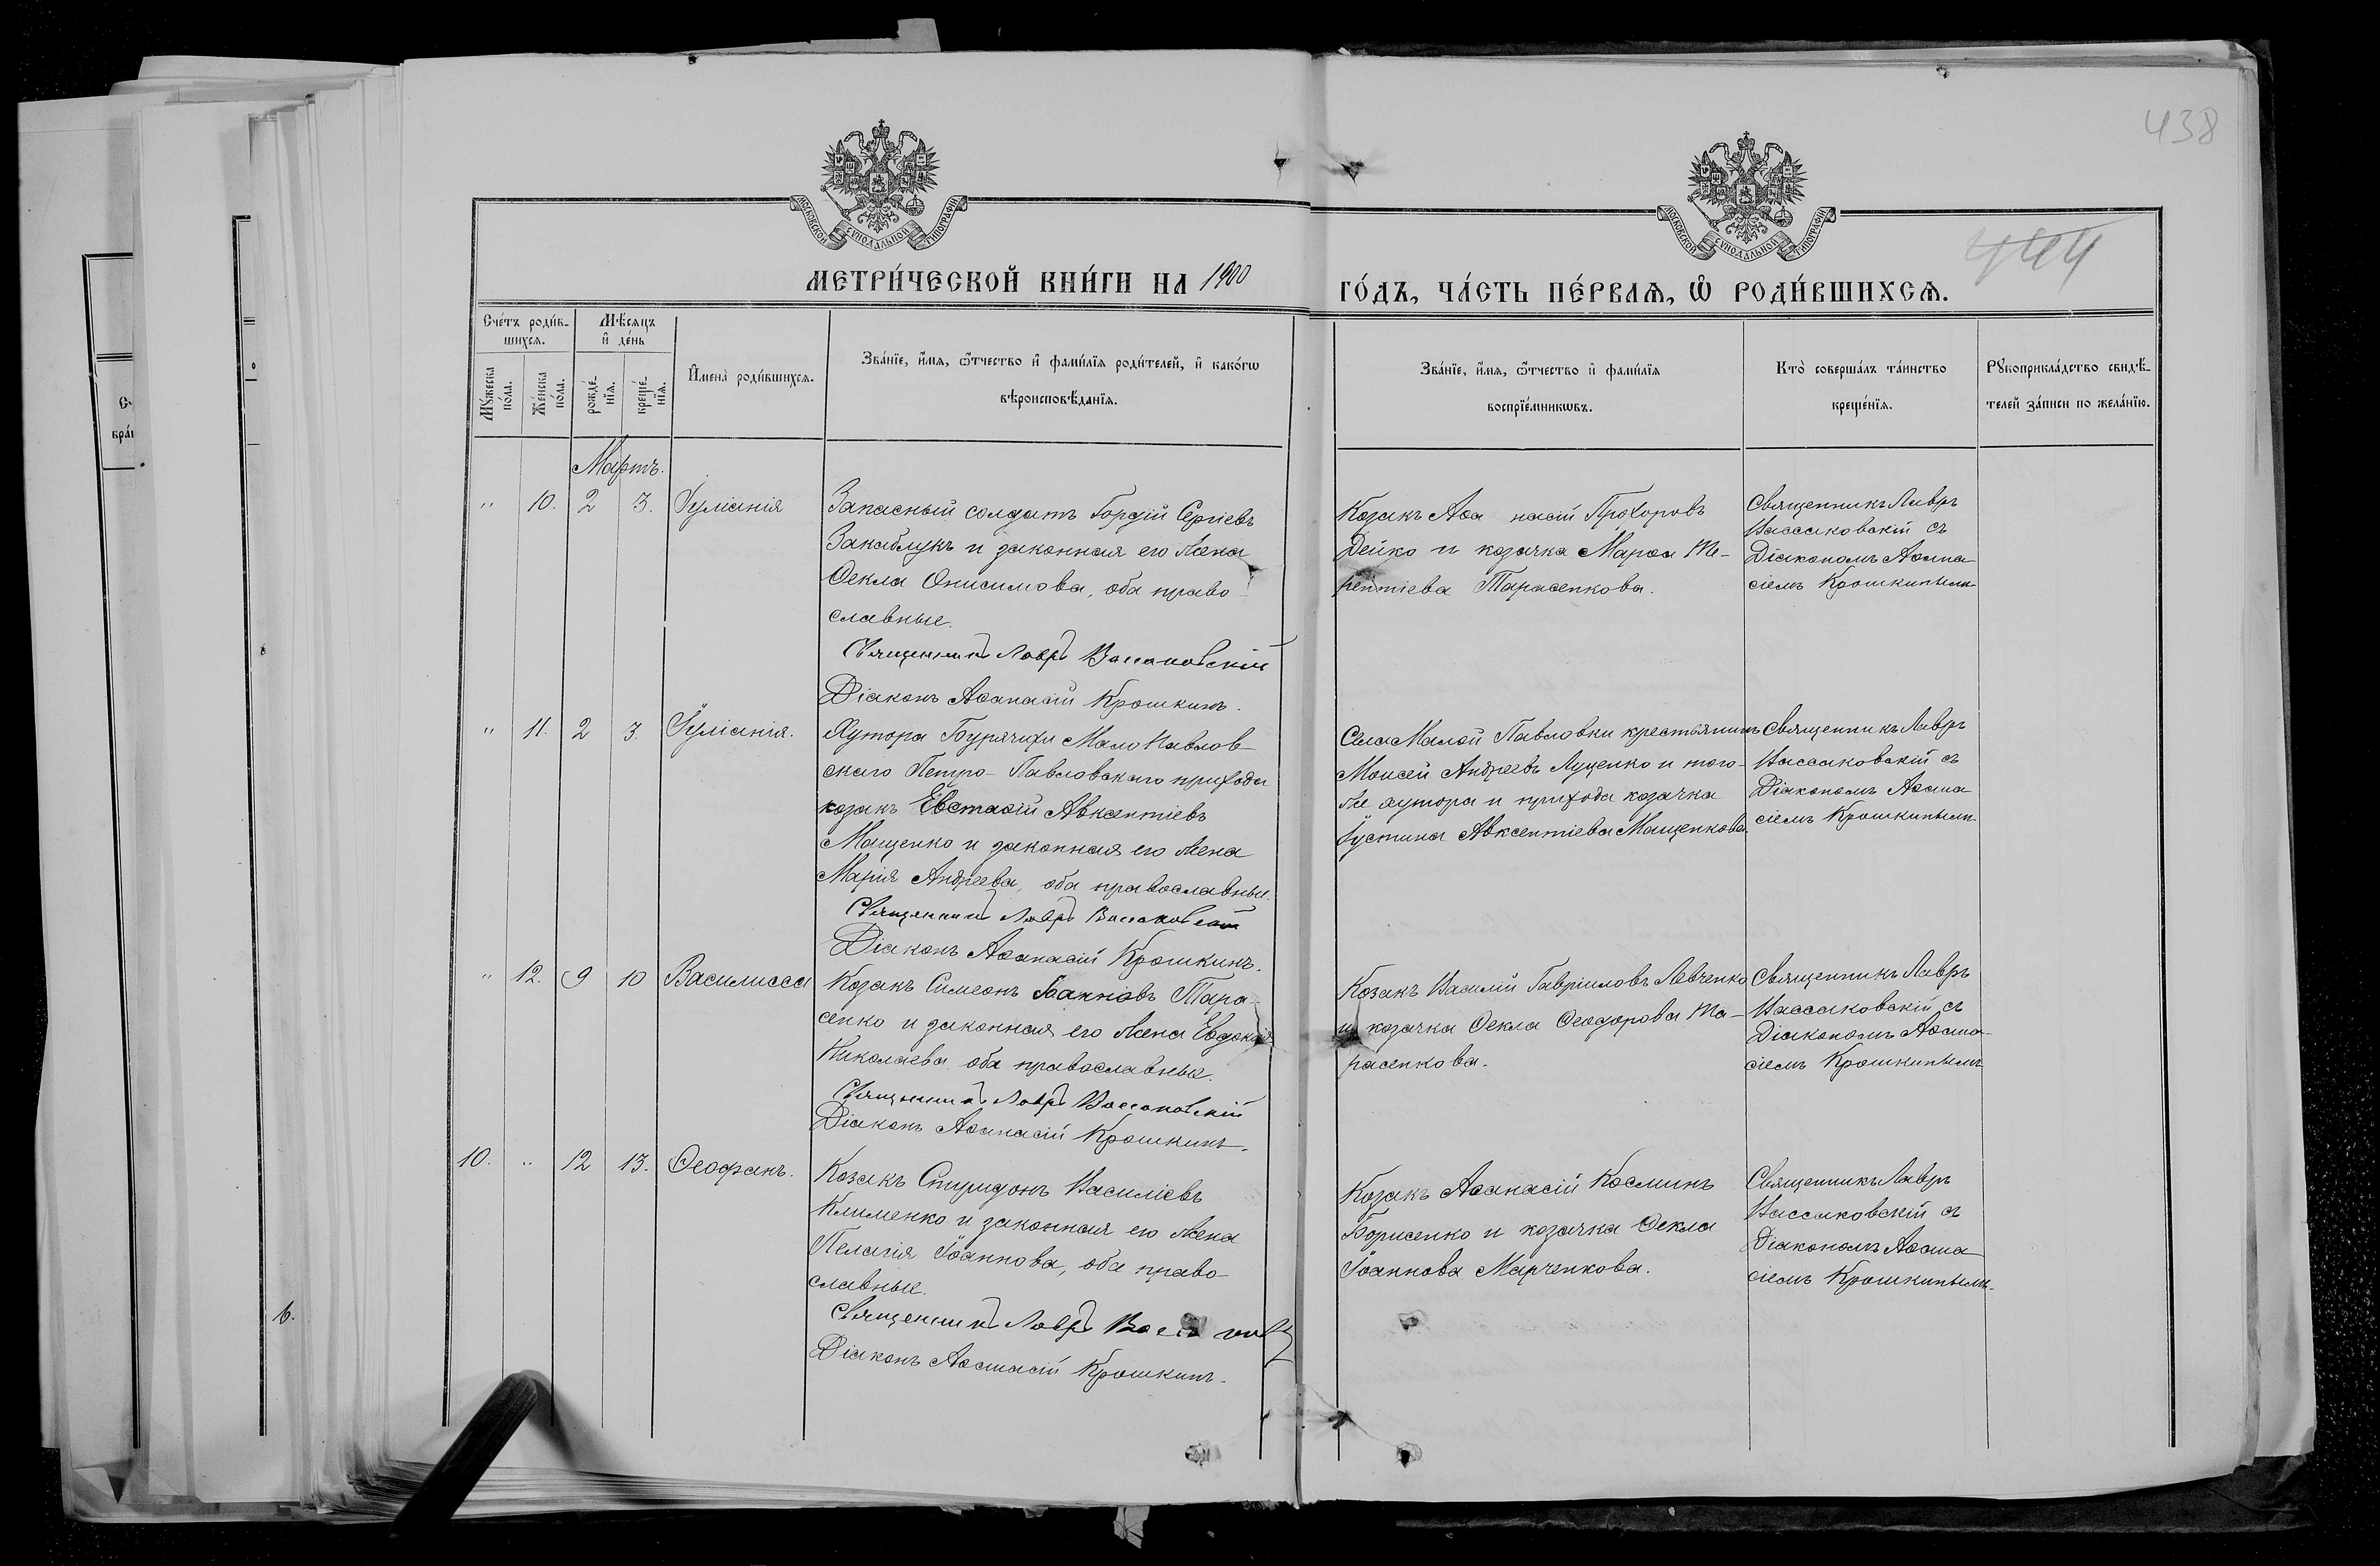 438
444
МОСКОВСКОЙ СѴНОДАЛЬНОЙ ТИПОГРАФІИ
МОСКОВСКОЙ СѴНОДАЛЬНОЙ ТИПОГРАФІИ
МЕТРИ́ЧЕСКОЙ КНИ́ГИ НА 1900 ГО́ДЪ, ЧА́СТЬ ПЕ́РВАѦ, Ѡ҆ РОДИ́ВШИХСѦ.
Сче́тъ роди́в-
шихсѧ.
Мѣ́сѧцъ
и҆ де́нь
Мꙋ́жеска
по́ла.
Же́нска
по́ла.
рожде́-
нїѧ.
креще́-
нїѧ.
И҆мена̀ роди́вшихсѧ.
Зва́нїе, и҆́мѧ, ѻ҆́тчество и҆ фами́лїѧ роди́телей, и҆ како́гѡ
вѣроисповѣ́данїѧ.
Зва́нїе, и҆́мѧ, ѻ҆́тчество и҆ фами́лїѧ
воспрїе́мникѡвъ.
Кто̀ соверша́лъ та́инство
креще́нїѧ.
Рꙋкоприкла́дство свидѣ́-
телей за́писи по жела́нїю.
Мартъ.
" 10. 2 3. Іуліанія
Запасный солдатъ Гордій Сергіевъ
Закаблукъ и законная его жена
Ѳекла Онисимова, оба право
славные.
Священникъ Лавръ Вассаковскій
Діаконъ Аѳанасій Крошкинъ.
Козакъ Аѳа насій Прохоровъ
Дейко и козачка Марѳа Те-
рентіева Тарасенкова.
Священникъ Лавръ
Вассаковскій съ
Діакономъ Аѳана
сіемъ Крошкинымъ
" 11. 2 3. Іуліанія.
Хутора Бурячихи Мало Павлов-
скаго Петро-Павловскаго прихода
козакъ Евстаѳій Авксентіевъ
Мащенко и законная его жена
Марія Андреева, оба православные.
Священникъ Лавръ Вассаковскій
Діаконъ Аѳанасій Крошкинъ.
Села Малой Павловки крестьянинъ
Моисей Андреевъ Луценко и того-
же хутора и прихода козачка
Іустина Авксентіева Мащенкова
Священникъ Лавръ
Вассаковскій съ
Діакономъ Аѳана
сіемъ Крошкинымъ
" 12. 9 10 Василисса
Козакъ Симеонъ Іоанновъ Тара-
сенко и законная его жена Евдокія
Николаева, оба православные.
Священникъ Лавръ Вассаковскій
Діаконъ Аѳанасій Крошкинъ.
Козакъ Василій Гавріиловъ Левченко
и козачка Ѳекла Ѳеодорова Та-
расенкова.
Священникъ Лавръ
Вассаковскій съ
Діакономъ Аѳана-
сіемъ Крошкинымъ
10. " 12 13. Ѳеофанъ.
Козакъ Спиридонъ Василіевъ
Клименко и законная его жена
Пелагія Іоаннова, оба право-
славные.
Священникъ Лавръ
Діаконъ Аѳанасій Крошкинъ.
Козакъ Аѳанасій Косминъ
Борисенко и козачка Ѳекла
Іоаннова Марченкова.
Священникъ Лавръ
Вассаковскій съ
Діакономъ Аѳана
сіемъ Крошкинымъ.